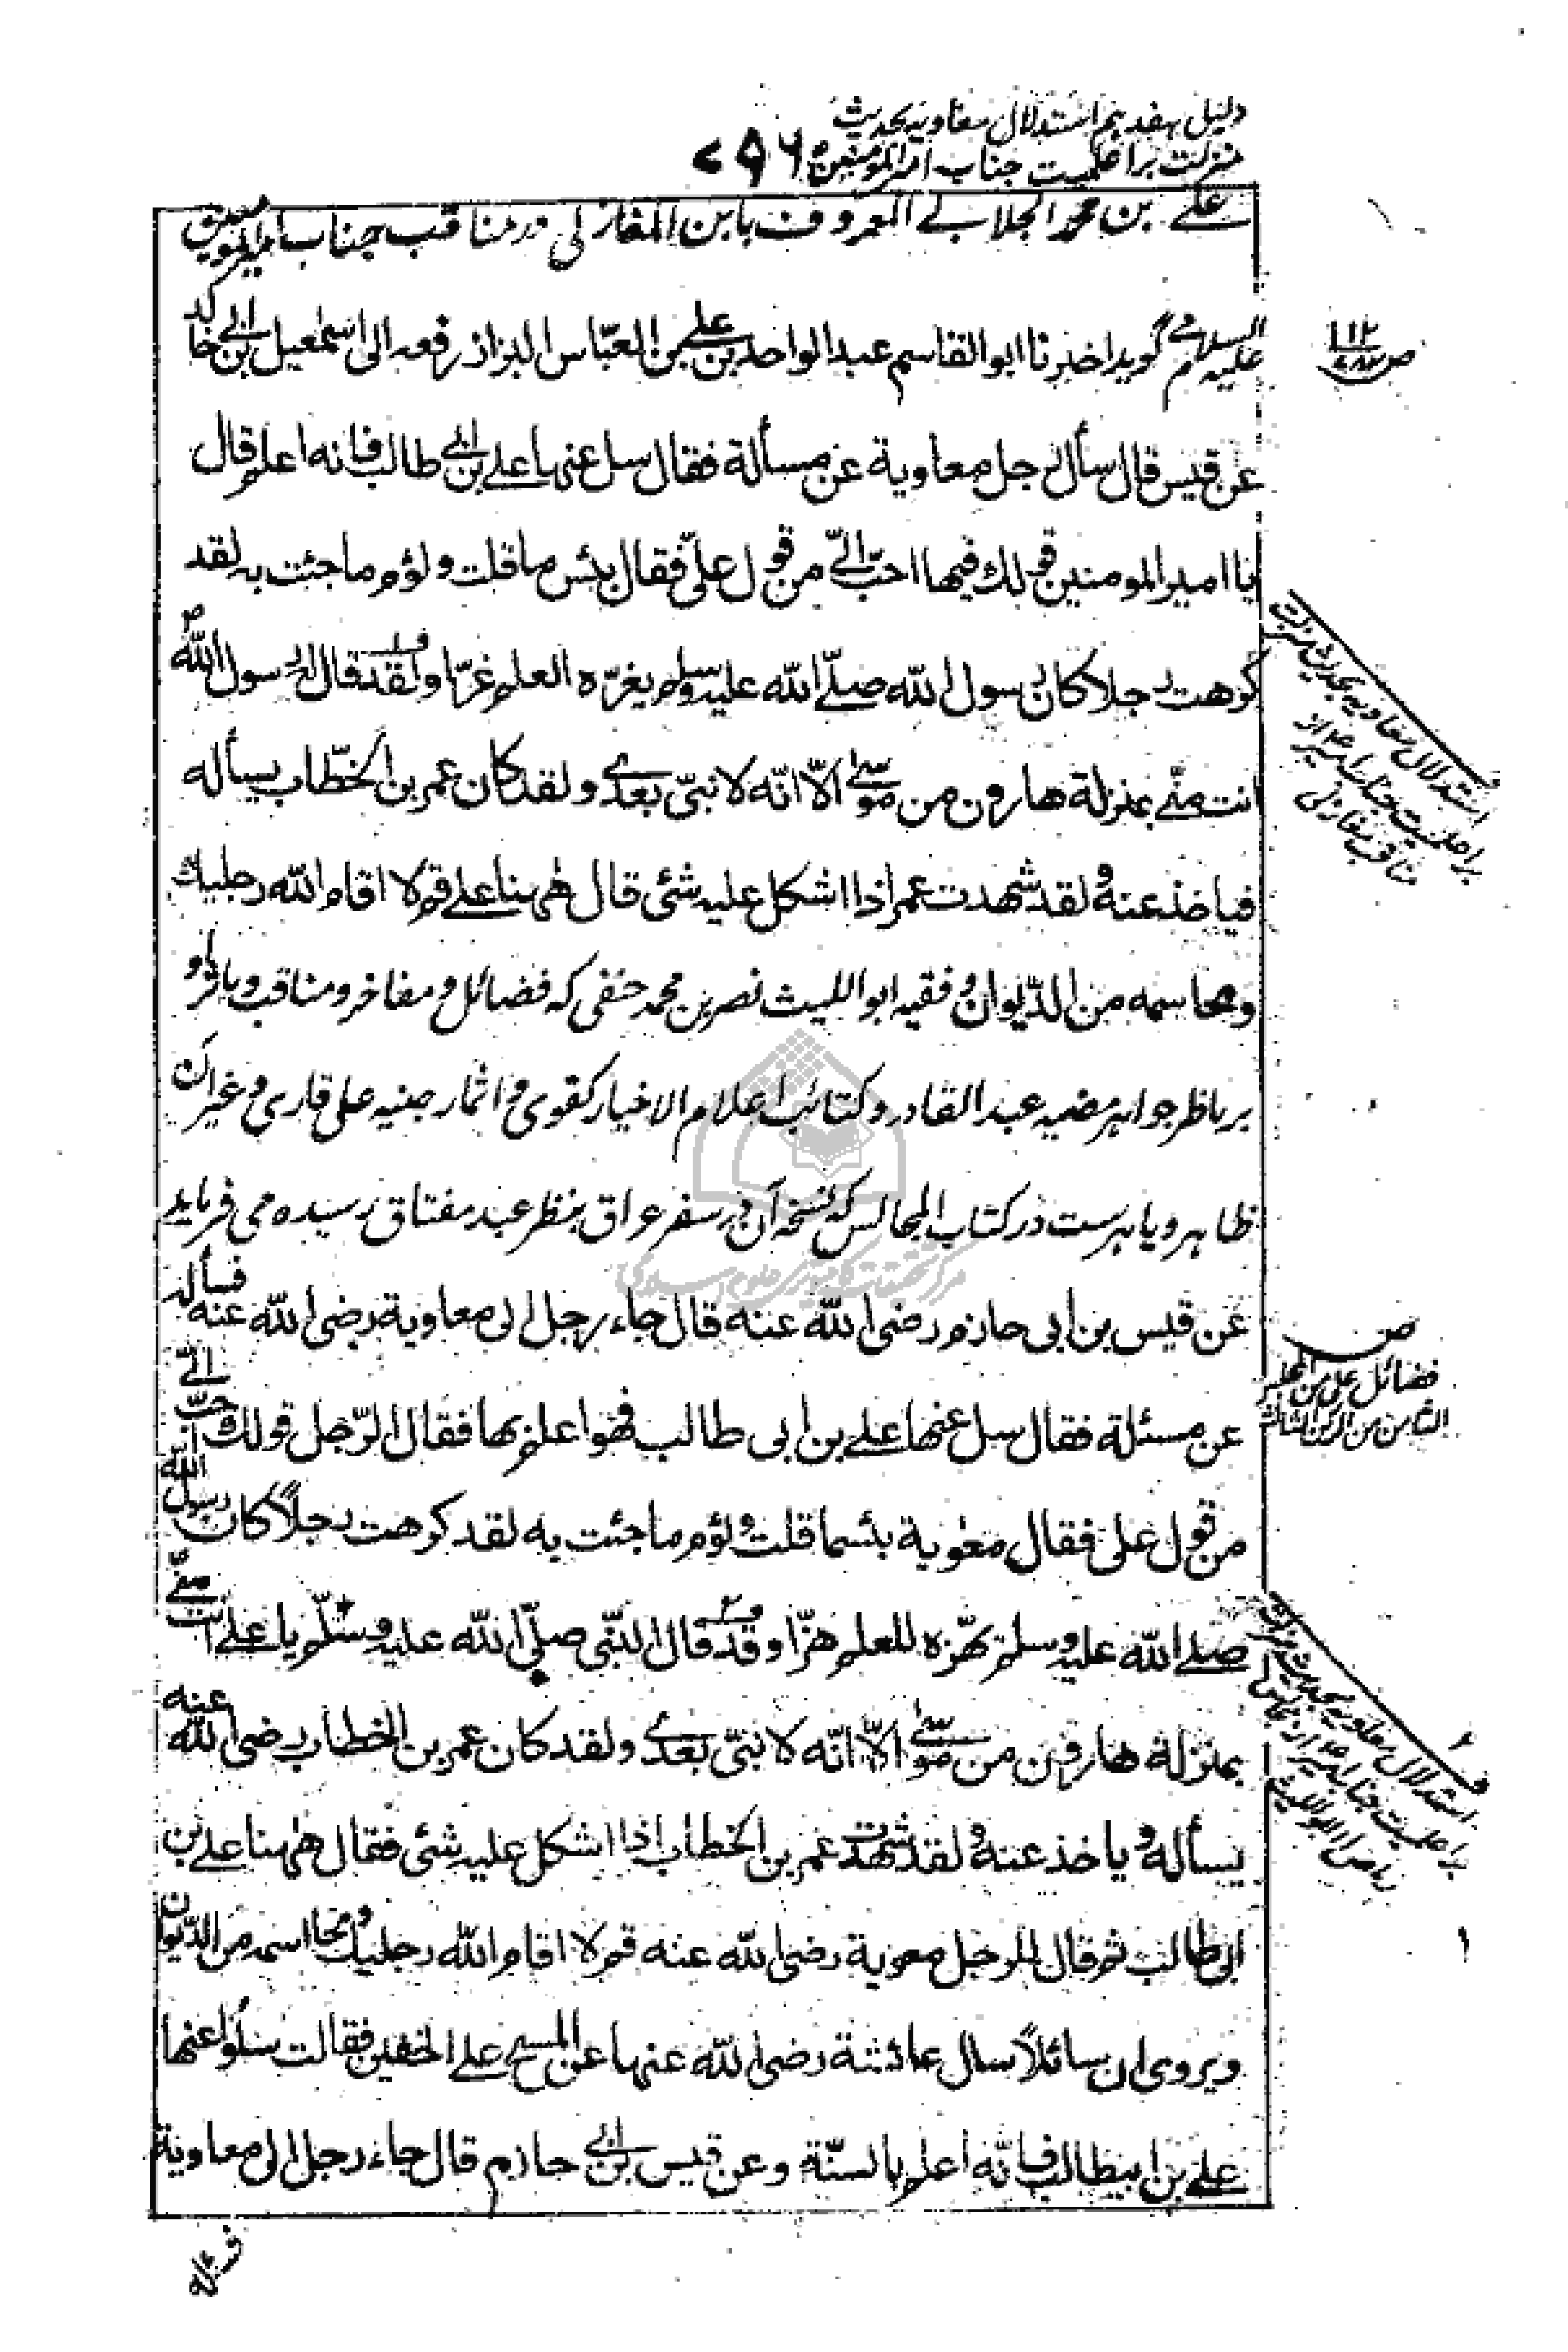 دلیل هفدهم استدلال معاویه بحدیث
منزلت بر اعلمیت جناب امیرالمومنین ۷۹۶
علے بن محمد الجلابی المعروف بابن المغازلی در مناقب جناب امیرالمومنین
علیہ السلام گوید اخبرنا ابو القاسم عبد الواحد بن علے بن العبّاس البزاز رفعه الی اسمٰعیل بن ابی خالد
عن قیس قال سأل رجل معاویة عن مسألة فقال سل عنہا علے بن ابی طالب فانه اعلم قال
یا امیر المومنین قولك فیها احبّ الیّ من قول علیّ فقال بئس ما قلت ولؤم ما جئت به لقد
کرهت رجلا کان رسول اللّه صلّے اللّه علیه وسلم یغرّه العلم غرّا ولقد قال له رسول اللّه ص
انت منّے بمنزلة هارون من موسیٰ الّا انّه لا نبیّ بعدی ولقد کان عمر بن الخطّاب یسأله
فیاخذ عنه ولقد شهدت عمر اذا اشکل علیه شئی قال هٰهنا علے قم لا اقام اللّه رجلیك
ومحا اسمه من الدّیوان و فقیه ابو اللیث نصر بن محمد حنفی که فضائل و مفاخر و مناقب و مآثر او
بر ناظر جواهر مضیه عبد القادر و کتائب اعلام الاخیار کفوی و اثمار جنیه علی قاری و غیر آن
ظاهر و باهرست در کتاب المجالس که نسخه آن در سفر عراق بنظر عبد مفتاق رسیده می فرماید
عن قیس بن ابی حازم رضی اللّه عنه قال جاء رجل الی معاویة رضی اللّه عنه فسأله
عن مسئلة فقال سل عنها علے بن ابی طالب فهو اعلم بها فقال الرّجل قولك احبّ الیّ
من قول علی فقال معٰویة بئسما قلت و لؤم ما جئت به لقد کرهت رجلاً کان رسول اللّه
صلے اللّه علیه وسلم یهزّه للعلم هزّا وقد قال له النّبی صلّی اللّه علیه وسلّم یا علے انت منّی
بمنزلة هارون من موسیٰ الّا انّه لا نبیّ بعدی ولقد کان عمر بن الخطاب رضی اللّه عنه
یسأله و یاخذ عنه و لقد شهدت عمر بن الخطاب اذا اشکل علیه شئی فقال هٰهنا علے بن
ابی طالب ثم قال للرجل معویة رضی اللّه عنه قم لا اقام اللّه رجلیك و محا اسمه من الدّیوان
ویروی ان سائلاً سال عائشة رضی اللّه عنہا عن المسح علے الخفین فقالت سلوا عنها
علے بن ابیطالب فانّه اعلم بالسنّة وعن قیس بن ابی حازم قال جاء رجل الی معاویة
ص ۱۱۲
استدلال معاویه بحدیث منزلت
بر اعلمیت جناب امیر از
مناقب مغازلی
ص
فضائل علی من المجلس
الثامن من الثالث
استدلال معاویه بحدیث منزلت
بر اعلمیت جناب امیر از مجالس
ابو اللیث